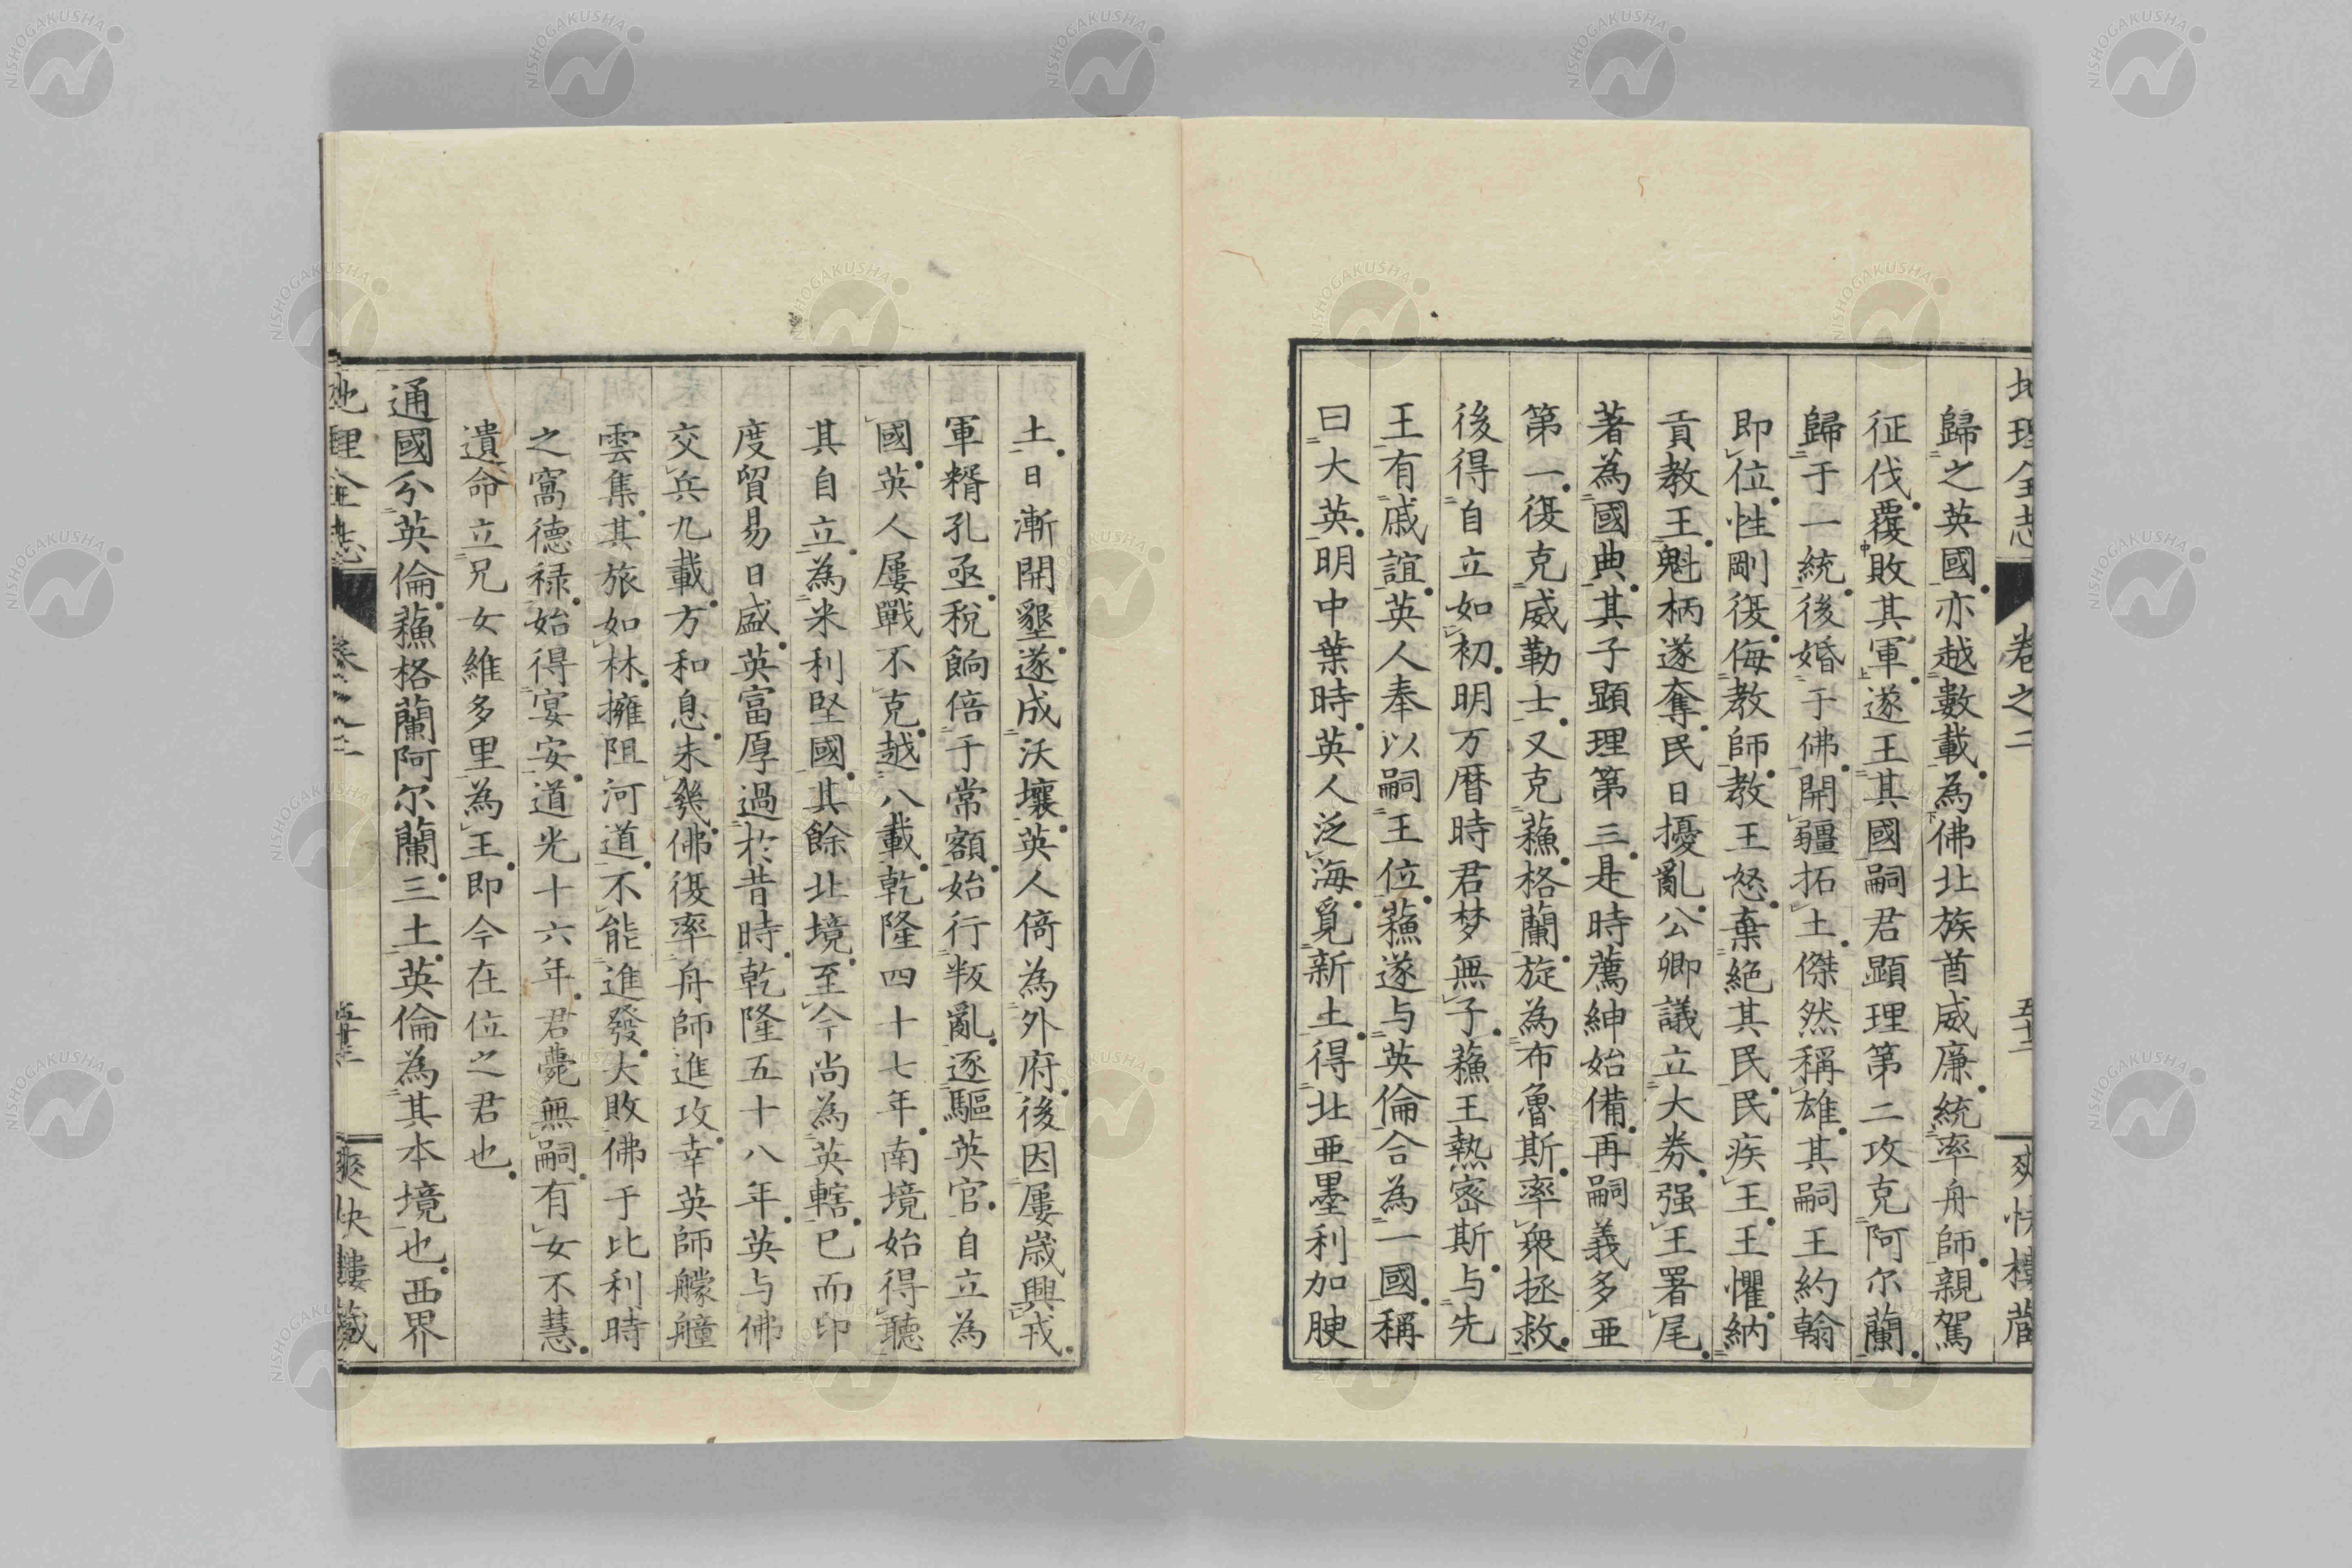 地理全志 卷之二 五十二 爽快樓藏
歸之英國亦越數載為佛北族酋威廉統率舟師親駕
征伐覆敗其軍遂王其國嗣君顕理第二攻克阿尔蘭
歸于一統後婚于佛開疆拓土傑然稱雄其嗣王約翰
即位性剛復侮教師教王怒棄絕其民民疾王王懼納
貢教王魁柄遂奪民日擾亂公卿議立大券强王署尾
著為國典其子顕理第三是時薦紳始備再嗣義多亜
第一復克威勒士又克蘓格蘭旋為布魯斯率衆拯救
後得自立如初明万暦時君梦無子蘓王熱宻斯与先
王有戚誼英人奉以嗣王位蘓遂与英倫合為一國稱
曰大英明中葉時英人泛海覓新土得北亜墨利加腴
土日漸開墾遂成沃壤英人倚為外府後因屢嵗興戎
軍糈孔亟稅餉倍于常額始行叛亂逐驅英官自立為
國英人屢戰不克越八載乾隆四十七年南境始得聽
其自立為米利堅國其餘北境至今尚為英轄已而印
度貿易日盛英富厚過於昔時乾隆五十八年英与佛
交兵九載方和息未幾佛復率舟師進攻幸英師艨艟
雲集其旅如林擁阻河道不能進發大敗佛于比利時
之窩德禄始得宴安道光十六年君薨無嗣有女不慧
遺命立兄女維多里為王即今在位之君也
通國分英倫蘓格蘭阿尔蘭三土英倫為其本境也西界
地理全志 卷之二 五十三 爽快樓藏
NISHOGAKUSHA